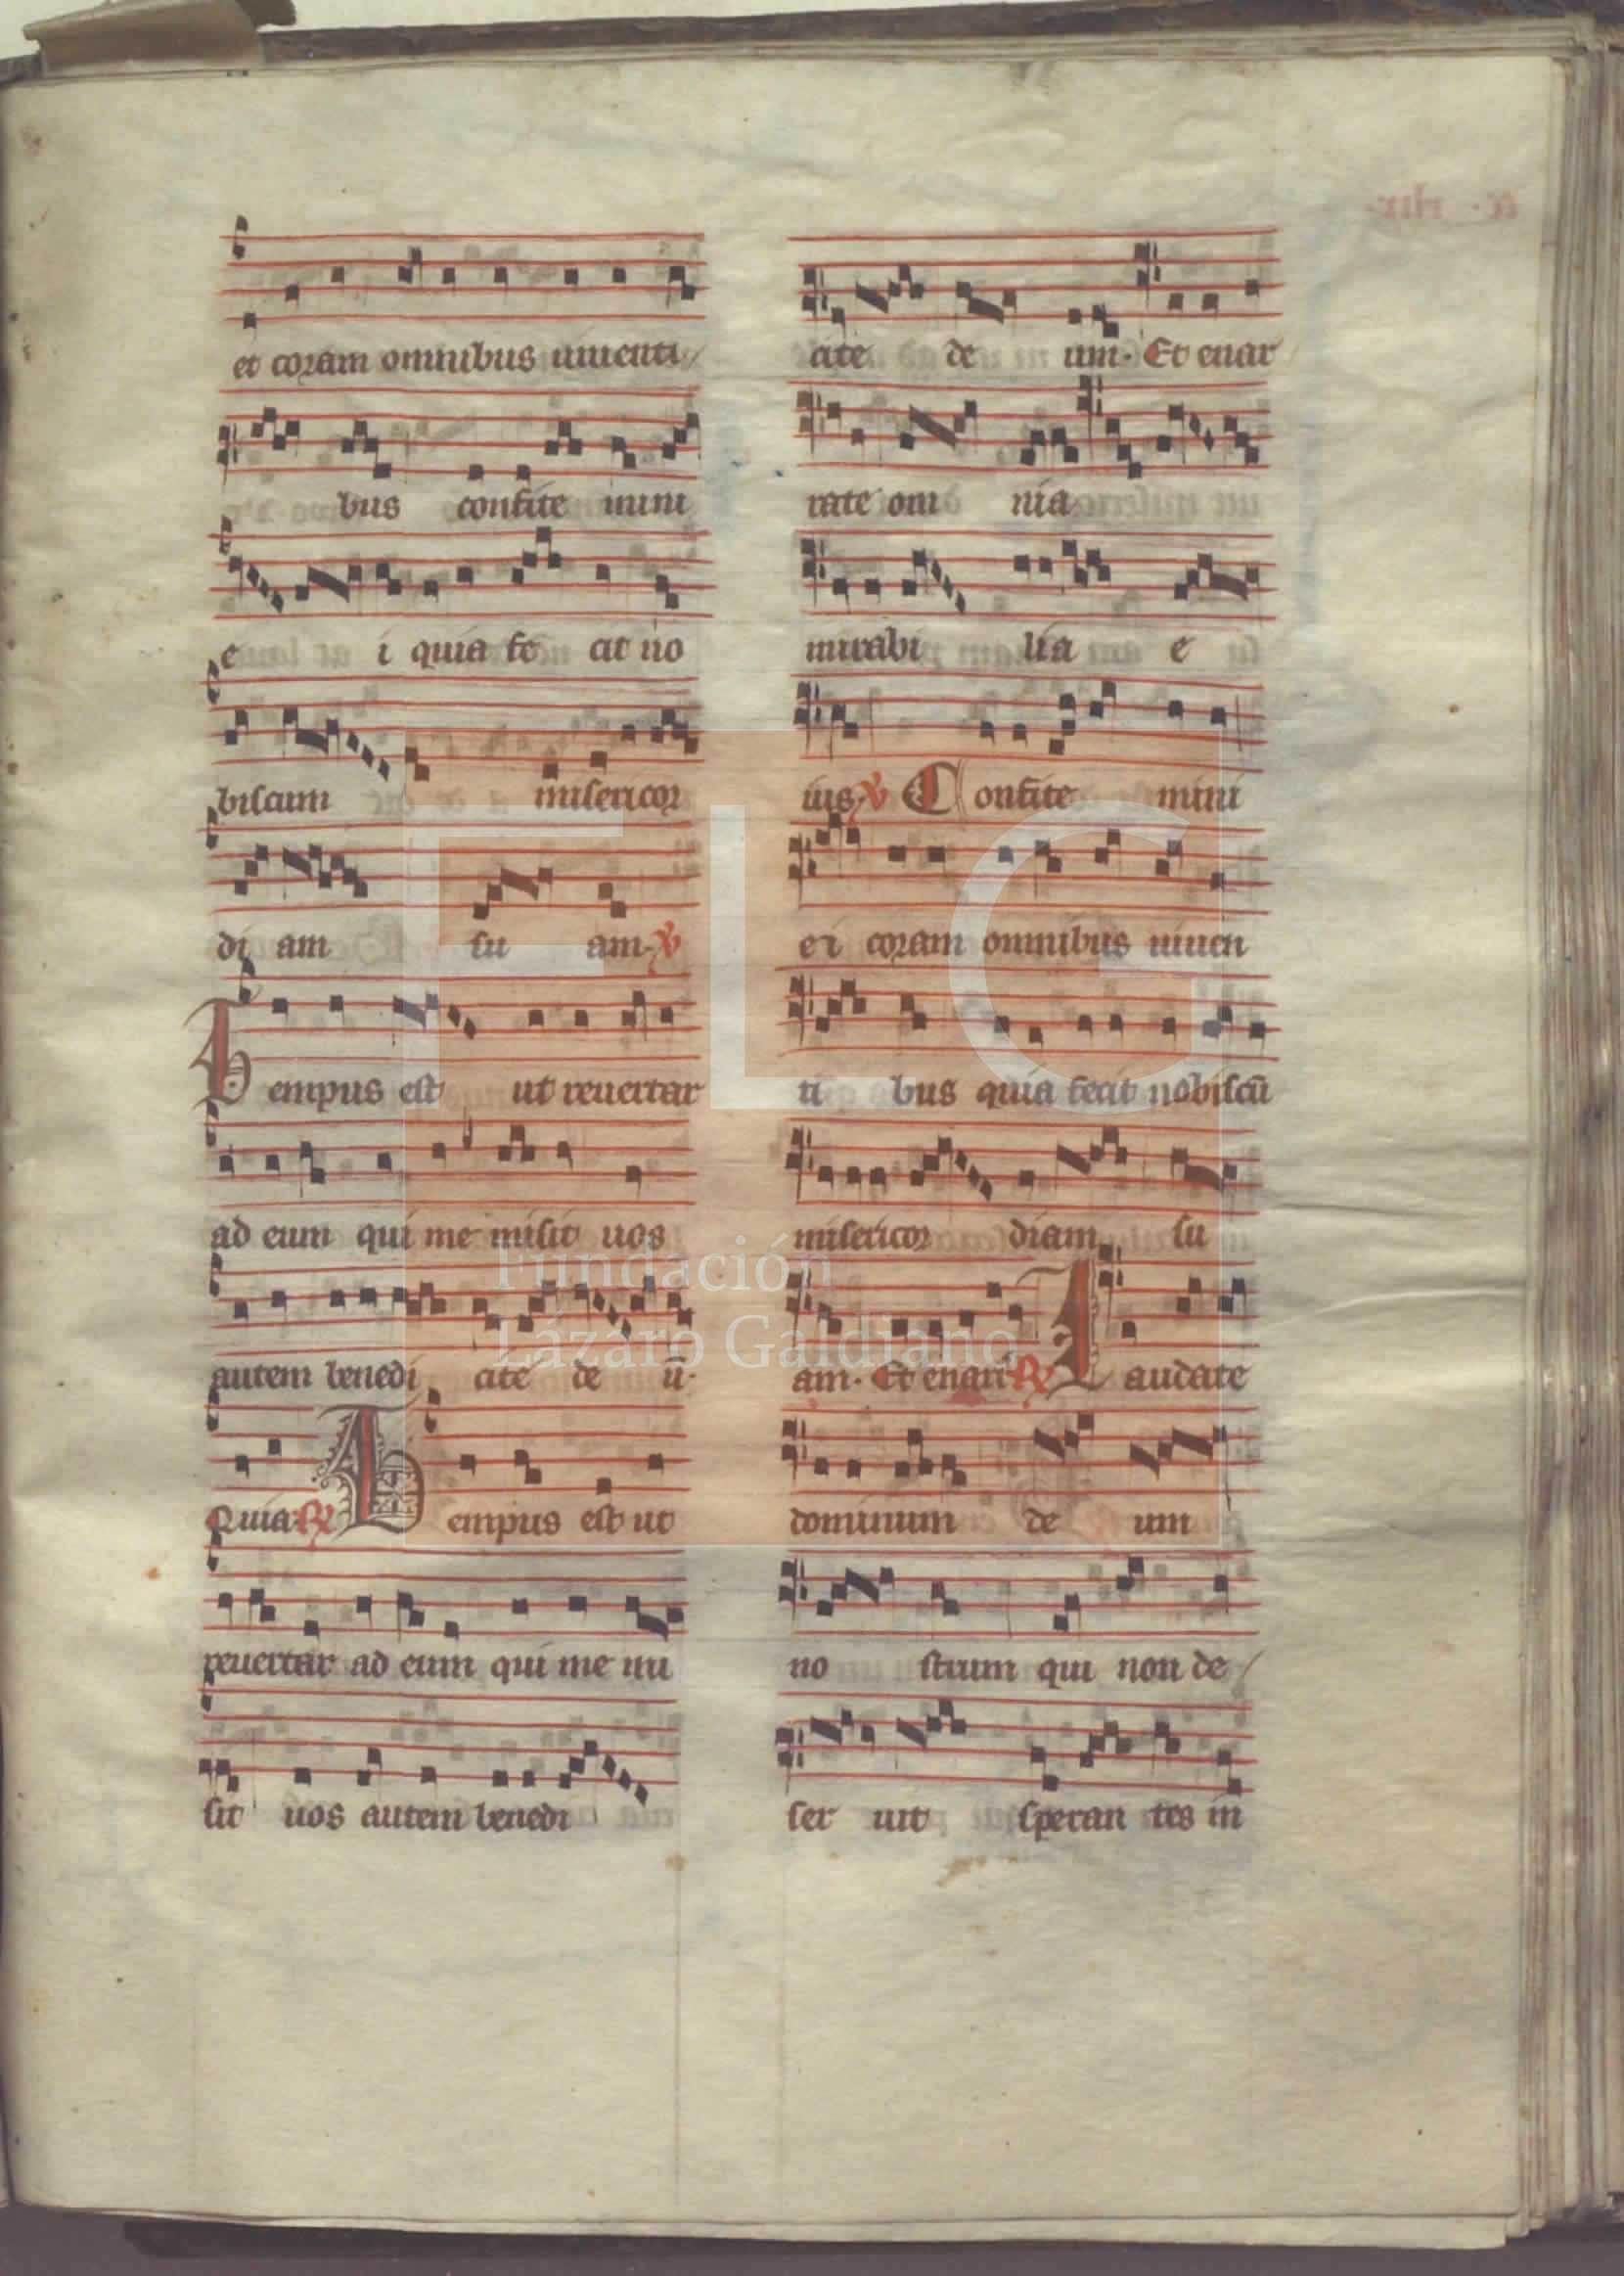 et coram omnibus uiuenti
bus confite mini
e i quia fe cit no
biscum misericor
di am su am. V
Tempus est ut reuertar
ad eum qui me misit uos
autem benedi cite de ū.
Quia. R Tempus est ut
reuertar ad eum qui me mi
sit uos autem benedi
cite de um. Et enar
rate om nia
mirabi lia e
ius. V Confite mini
ei coram omnibus uiuen
ti bus quia fecit nobiscū
misericor diam su
am. Et enarr R Laudate
dominum de um
no strum qui non de
ser uit speran tes in
FLG
Fundación
Lázaro Galdiano